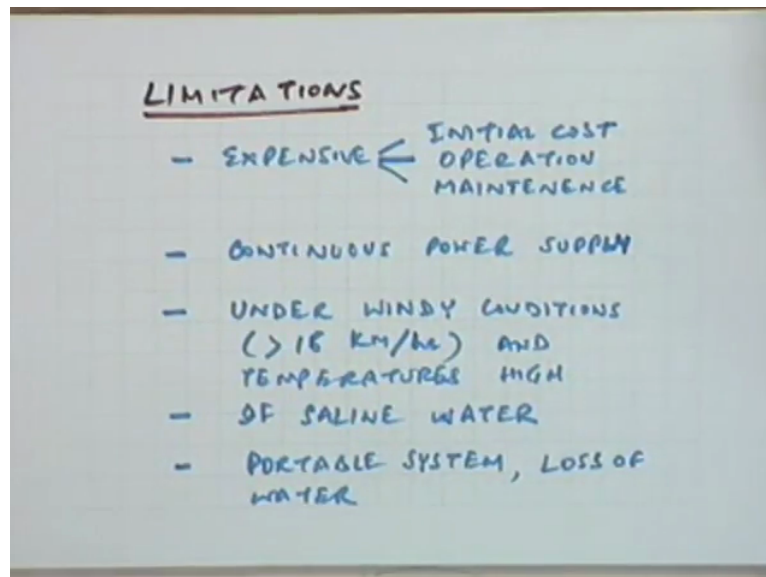 LIMITATIONS
- EXPENSIVE < INITIAL COST
OPERATION
MAINTENENCE
- CONTINUOUS POWER SUPPLY
- UNDER WINDY CONDITIONS
(>18 KM/hr) AND
TEMPERATURES HIGH
- IF SALINE WATER
- PORTABLE SYSTEM, LOSS OF
WATER